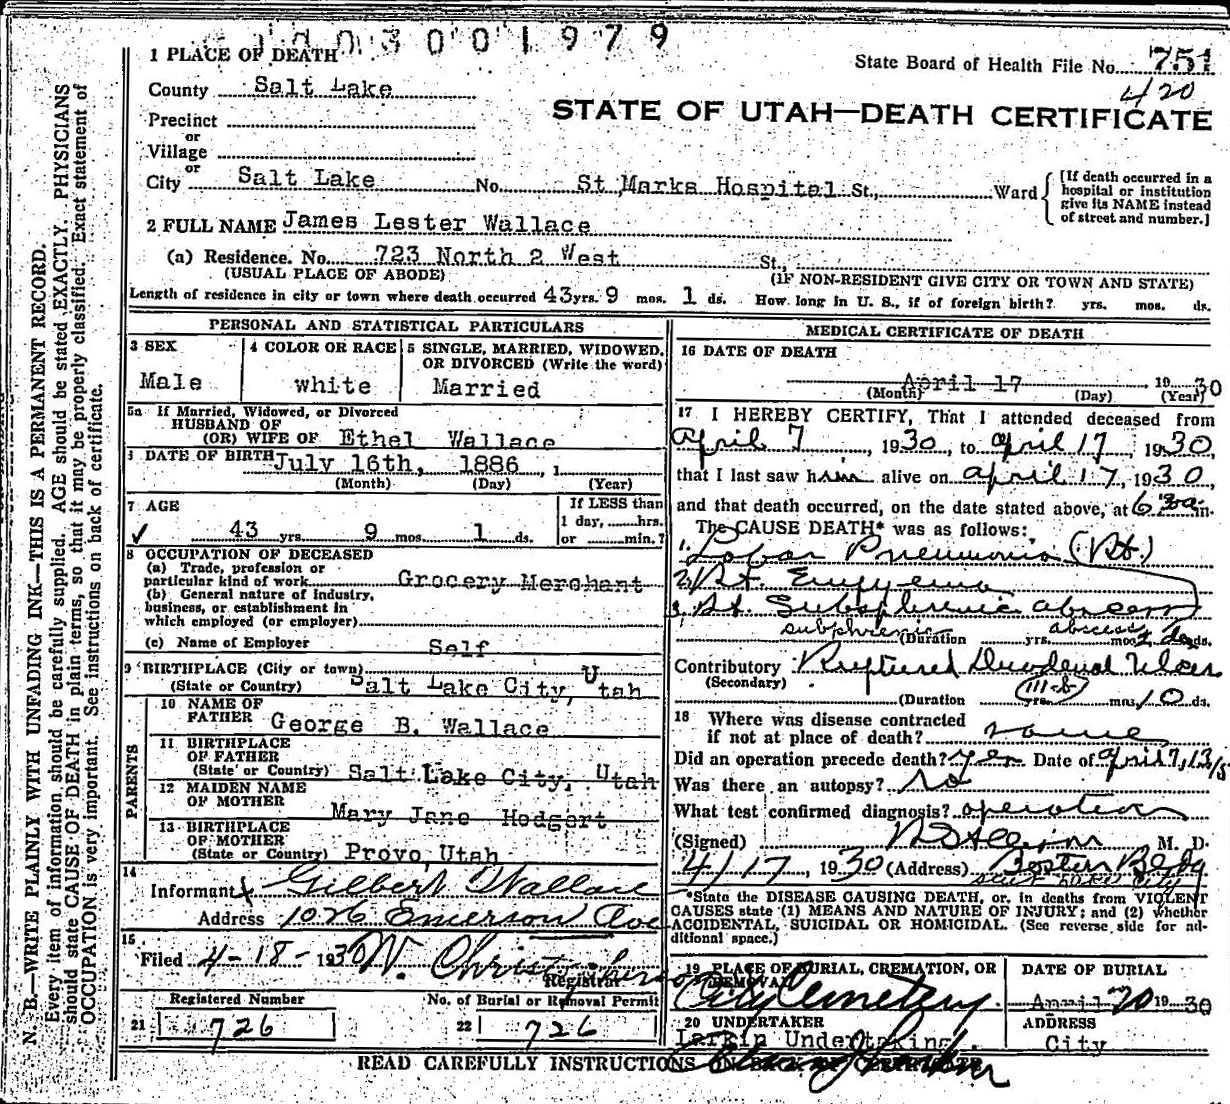 030 01979
1 PLACE OF DEATH
State Board of Health File No. 751
420
County Salt Lake
STATE OF UTAH—DEATH CERTIFICATE
Precinct
or
Village
or
City Salt Lake No. St Marks Hospital St., Ward
[If death occurred in a
hospital or institution
give its NAME instead
of street and number.]
2 FULL NAME James Lester Wallace
(a) Residence. No. 723 North 2 West St.,
(USUAL PLACE OF ABODE) (IF NON-RESIDENT GIVE CITY OR TOWN AND STATE)
Length of residence in city or town where death occurred 43 yrs. 9 mos. 1 ds. How long in U. S., if of foreign birth? yrs. mos. ds.
PERSONAL AND STATISTICAL PARTICULARS
3 SEX
Male
4 COLOR OR RACE
white
5 SINGLE, MARRIED, WIDOWED,
OR DIVORCED (Write the word)
Married
5a If Married, Widowed, or Divorced
HUSBAND OF
(OR) WIFE OF Ethel Wallace
DATE OF BIRTH July 16th, 1886, 1
(Month) (Day) (Year)
7 AGE
43 yrs. 9 mos. 1 ds.
If LESS than
1 day, hrs.
or min.?
8 OCCUPATION OF DECEASED
(a) Trade, profession or
particular kind of work Grocery Merchant
(b) General nature of industry,
business, or establishment in
which employed (or employer)
(c) Name of Employer Self
9 BIRTHPLACE (City or town)
(State or Country) Salt Lake City, Utah
PARENTS
10 NAME OF
FATHER George B. Wallace
11 BIRTHPLACE
OF FATHER
(State or Country) Salt Lake City, Utah
12 MAIDEN NAME
OF MOTHER
Mary Jane Hodgert
13 BIRTHPLACE
OF MOTHER
(State or Country) Provo, Utah
14
Informant Gilbert Wallace
Address 1026 Emerson Ave
15
Filed 4-18-1930 W. Christopherson
Registrar
Registered Number
21 726
No. of Burial or Removal Permit
22 726
MEDICAL CERTIFICATE OF DEATH
16 DATE OF DEATH
April 17 1930
(Month) (Day) (Year)
17 I HEREBY CERTIFY, That I attended deceased from
April 7, 1930, to April 17, 1930,
that I last saw him alive on April 17, 1930,
and that death occurred, on the date stated above, at 6 30a m.
The CAUSE DEATH* was as follows:
1. Lobar Pneumonia (Rt.)
2. Rt. Empyema
3. Rt. Subsphrenic abscess
subphrenic abscess
(Duration yrs. mos. ds.
Contributory Ruptured Duodenal Ulcer
(Secondary)
111-b
(Duration yrs. mos. 10 ds.
18 Where was disease contracted
if not at place of death?
Did an operation precede death? yes Date of April 7, 13/
Was there an autopsy? No
What test confirmed diagnosis? operation
(Signed) M. D.
4/17, 1930 (Address) Boston Bldg
Salt Lake City
*State the DISEASE CAUSING DEATH, or, in deaths from VIOLENT
CAUSES state (1) MEANS AND NATURE OF INJURY; and (2) whether
ACCIDENTAL, SUICIDAL OR HOMICIDAL. (See reverse side for ad-
ditional space.)
19 PLACE OF BURIAL, CREMATION, OR
REMOVAL
City Cemetery.
DATE OF BURIAL
April 20 1930
20 UNDERTAKER
Larkin Undertaking.
ADDRESS
City
READ CAREFULLY INSTRUCTIONS ON BACK OF CERTIFICATE
N. B.—WRITE PLAINLY WITH UNFADING INK—THIS IS A PERMANENT RECORD.
Every item of information should be carefully supplied. AGE should be stated EXACTLY. PHYSICIANS
should state CAUSE OF DEATH in plain terms, so that it may be properly classified. Exact statement of
OCCUPATION is very important. See instructions on back of certificate.